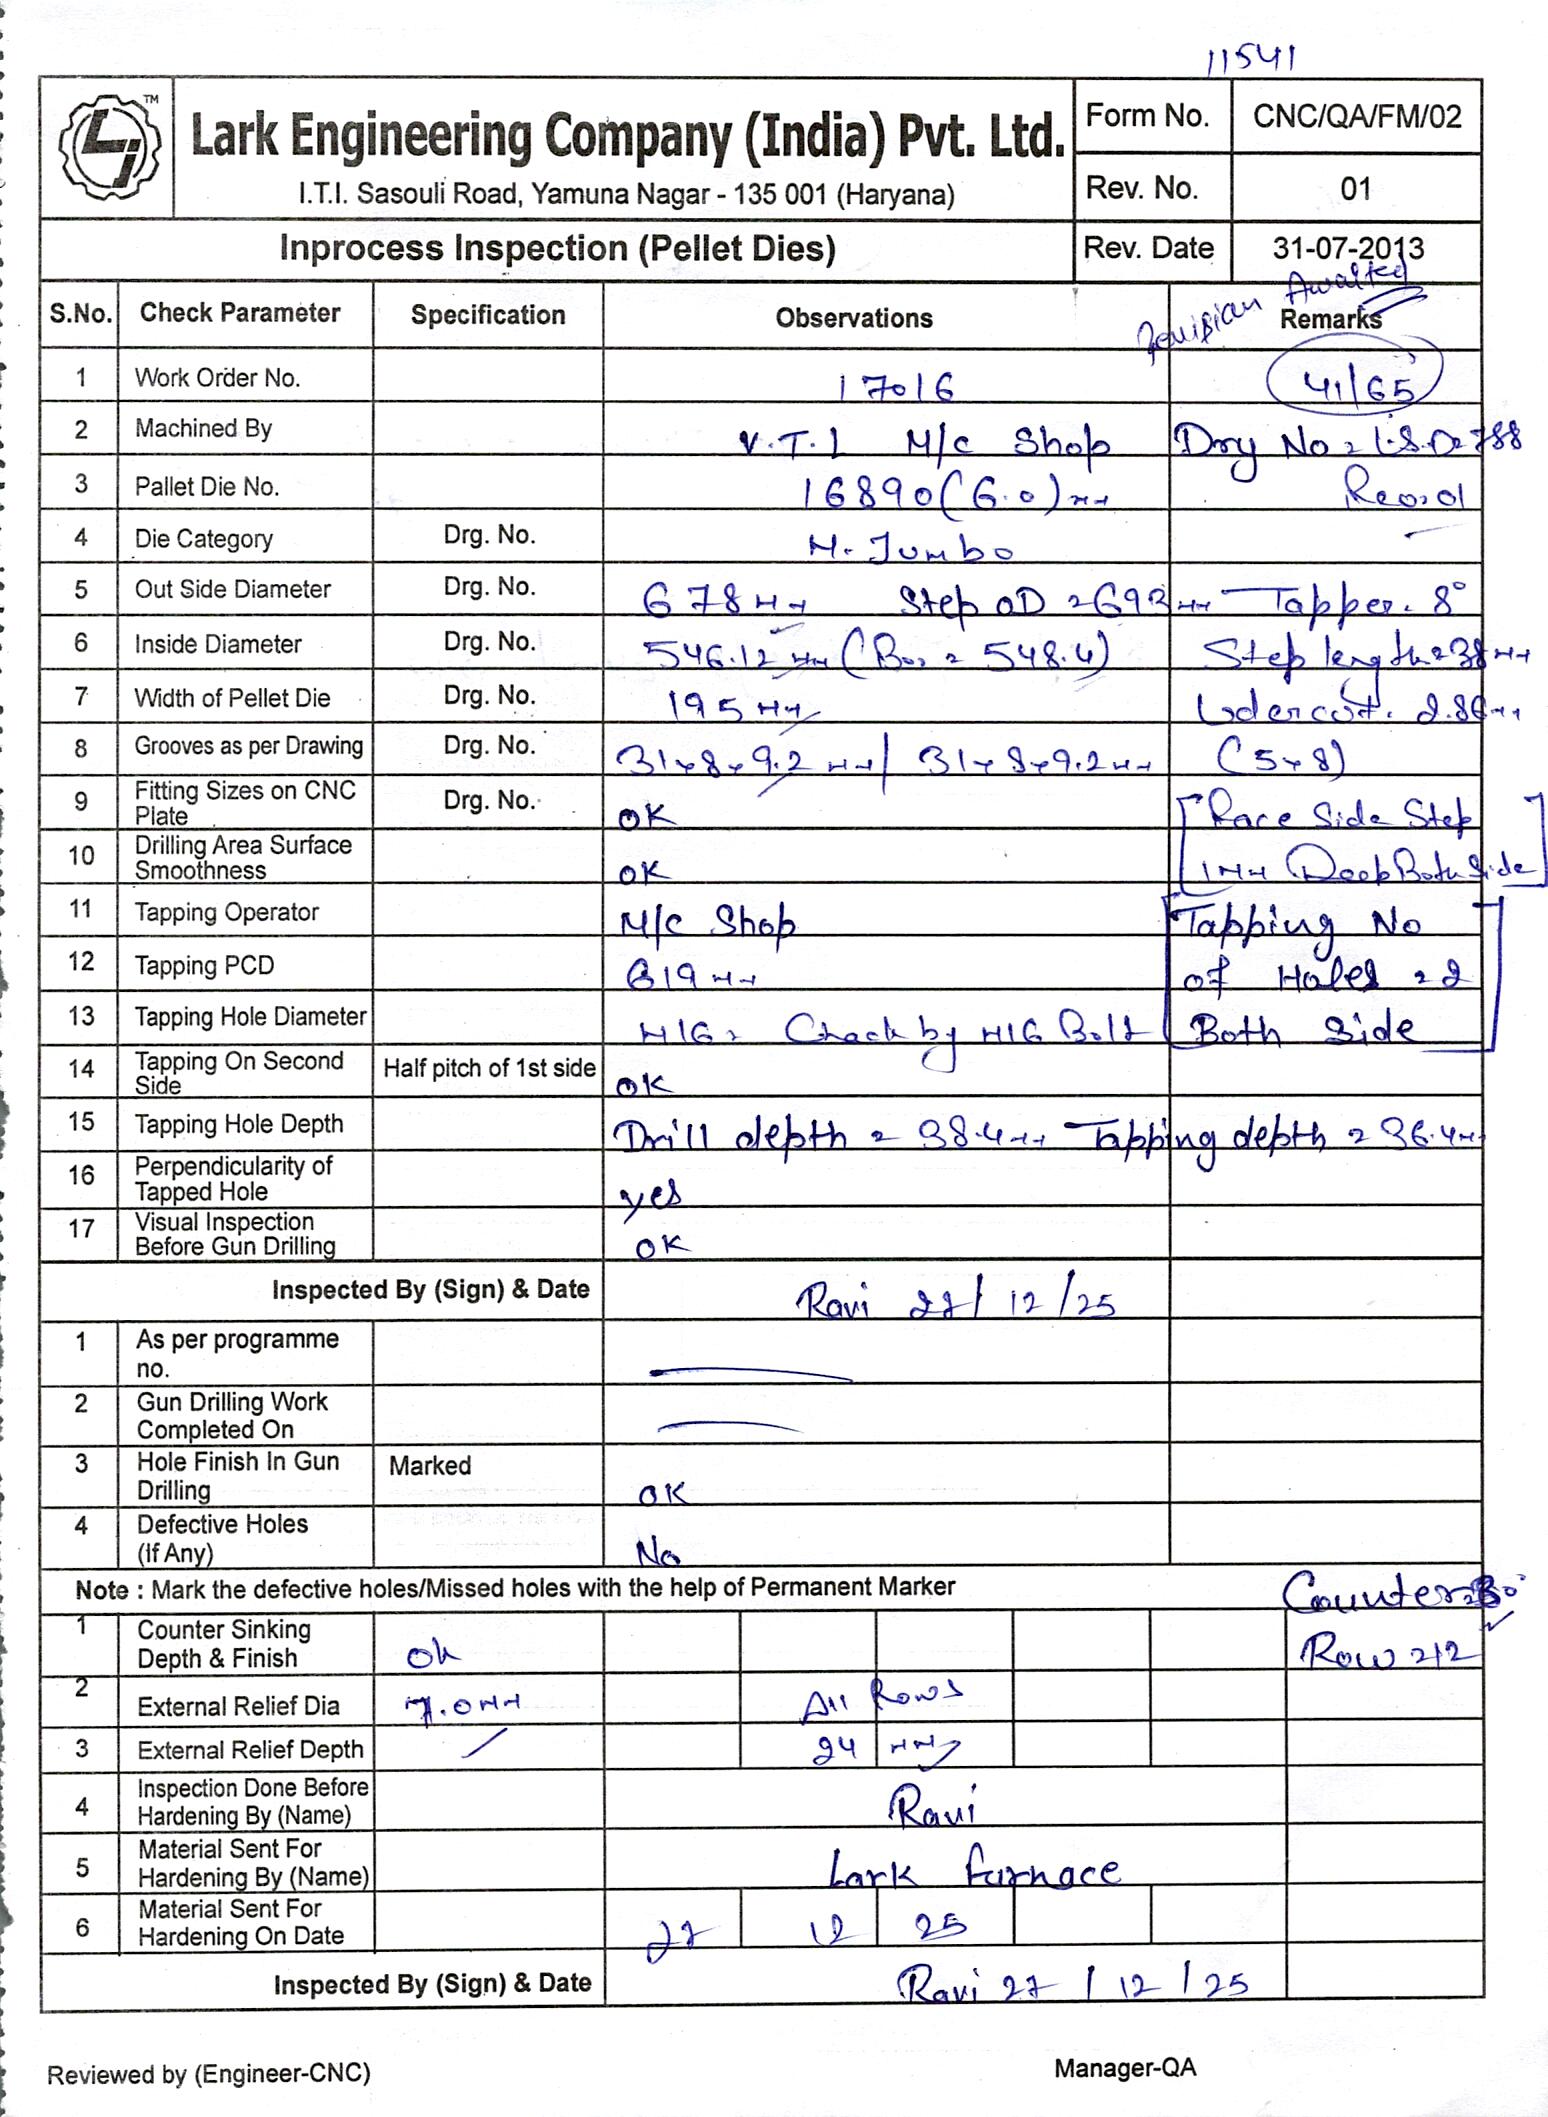 11541
TM
Lark Engineering Company (India) Pvt. Ltd.
I.T.I. Sasouli Road, Yamuna Nagar - 135 001 (Haryana)
Form No. CNC/QA/FM/02
Rev. No. 01
Inprocess Inspection (Pellet Dies) Rev. Date 31-07-2013
Awaited
S.No. Check Parameter Specification Observations Remarks
1 Work Order No. 17016 41/65
2 Machined By V.T.L M/c Shop
3 Pallet Die No. 16890 (6.0)
4 Die Category Drg. No. H. Jumbo
5 Out Side Diameter Drg. No. 678 Step OD = Tapper. 8°
6 Inside Diameter Drg. No. 546.12 548.4) Step length = 38
7 Width of Pellet Die Drg. No. 195
8 Grooves as per Drawing Drg. No. 31×8×9.2 / 31×8×9.2 (5×8)
9 Fitting Sizes on CNC Plate Drg. No. OK Race Side Step
10 Drilling Area Surface Smoothness OK Deep Both Side
11 Tapping Operator M/c Shop Tapping No
12 Tapping PCD 619 of Holes = 2
13 Tapping Hole Diameter M16 = Chack by M16 Bolt Both Side
14 Tapping On Second Side Half pitch of 1st side OK
15 Tapping Hole Depth Drill depth = 38.4 Tapping depth = 36.4
16 Perpendicularity of Tapped Hole yes
17 Visual Inspection Before Gun Drilling OK
Inspected By (Sign) & Date Ravi 27/12/25
1 As per programme no.
2 Gun Drilling Work Completed On
3 Hole Finish In Gun Drilling Marked OK
4 Defective Holes (If Any) No
Note : Mark the defective holes/Missed holes with the help of Permanent Marker Counter
1 Counter Sinking Depth & Finish Ok Row = 12
2 External Relief Dia 7.0 All Rows
3 External Relief Depth 24
4 Inspection Done Before Hardening By (Name) Ravi
5 Material Sent For Hardening By (Name) Lark furnace
6 Material Sent For Hardening On Date 27 12 25
Inspected By (Sign) & Date Ravi 27/12/25
Reviewed by (Engineer-CNC) Manager-QA